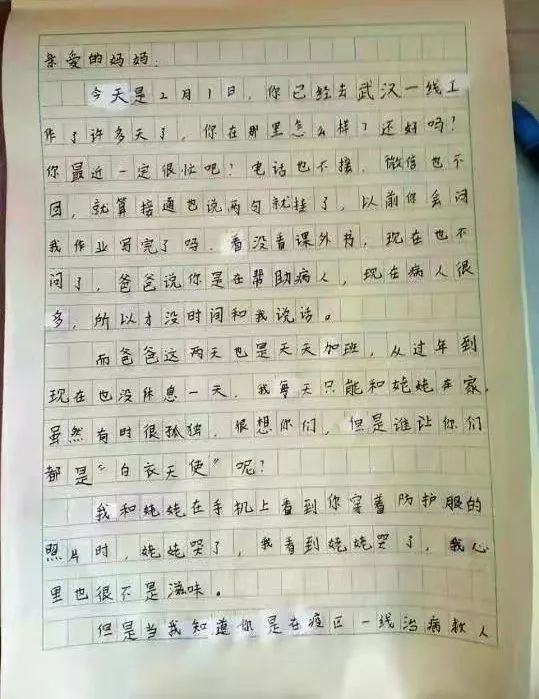 亲爱的妈妈:
今天是2月1日,你已经去武汉一线工
作了许多天了,你在那里怎么样?还好吗?
你最近一定很忙吧?电话也不接,微信也不
回,就算接通也说两句就挂了,以前你会问
我作业写完了吗,看没看课外书,现在也不
问了,爸爸说你是在帮助病人,现在病人很
多,所以才没时间和我说话。
而爸爸这两天也是天天加班,从过年到
现在也没休息一天,我每天只能和姥姥在家,
虽然有时很孤独,很想你们,但是谁让你们
都是“白衣天使”呢?
我和姥姥在手机上看到你穿着防护服的
照片时,姥姥哭了,我看到姥姥哭了,我心
里也很不是滋味。
但是当我知道你是在疫区一线治病救人